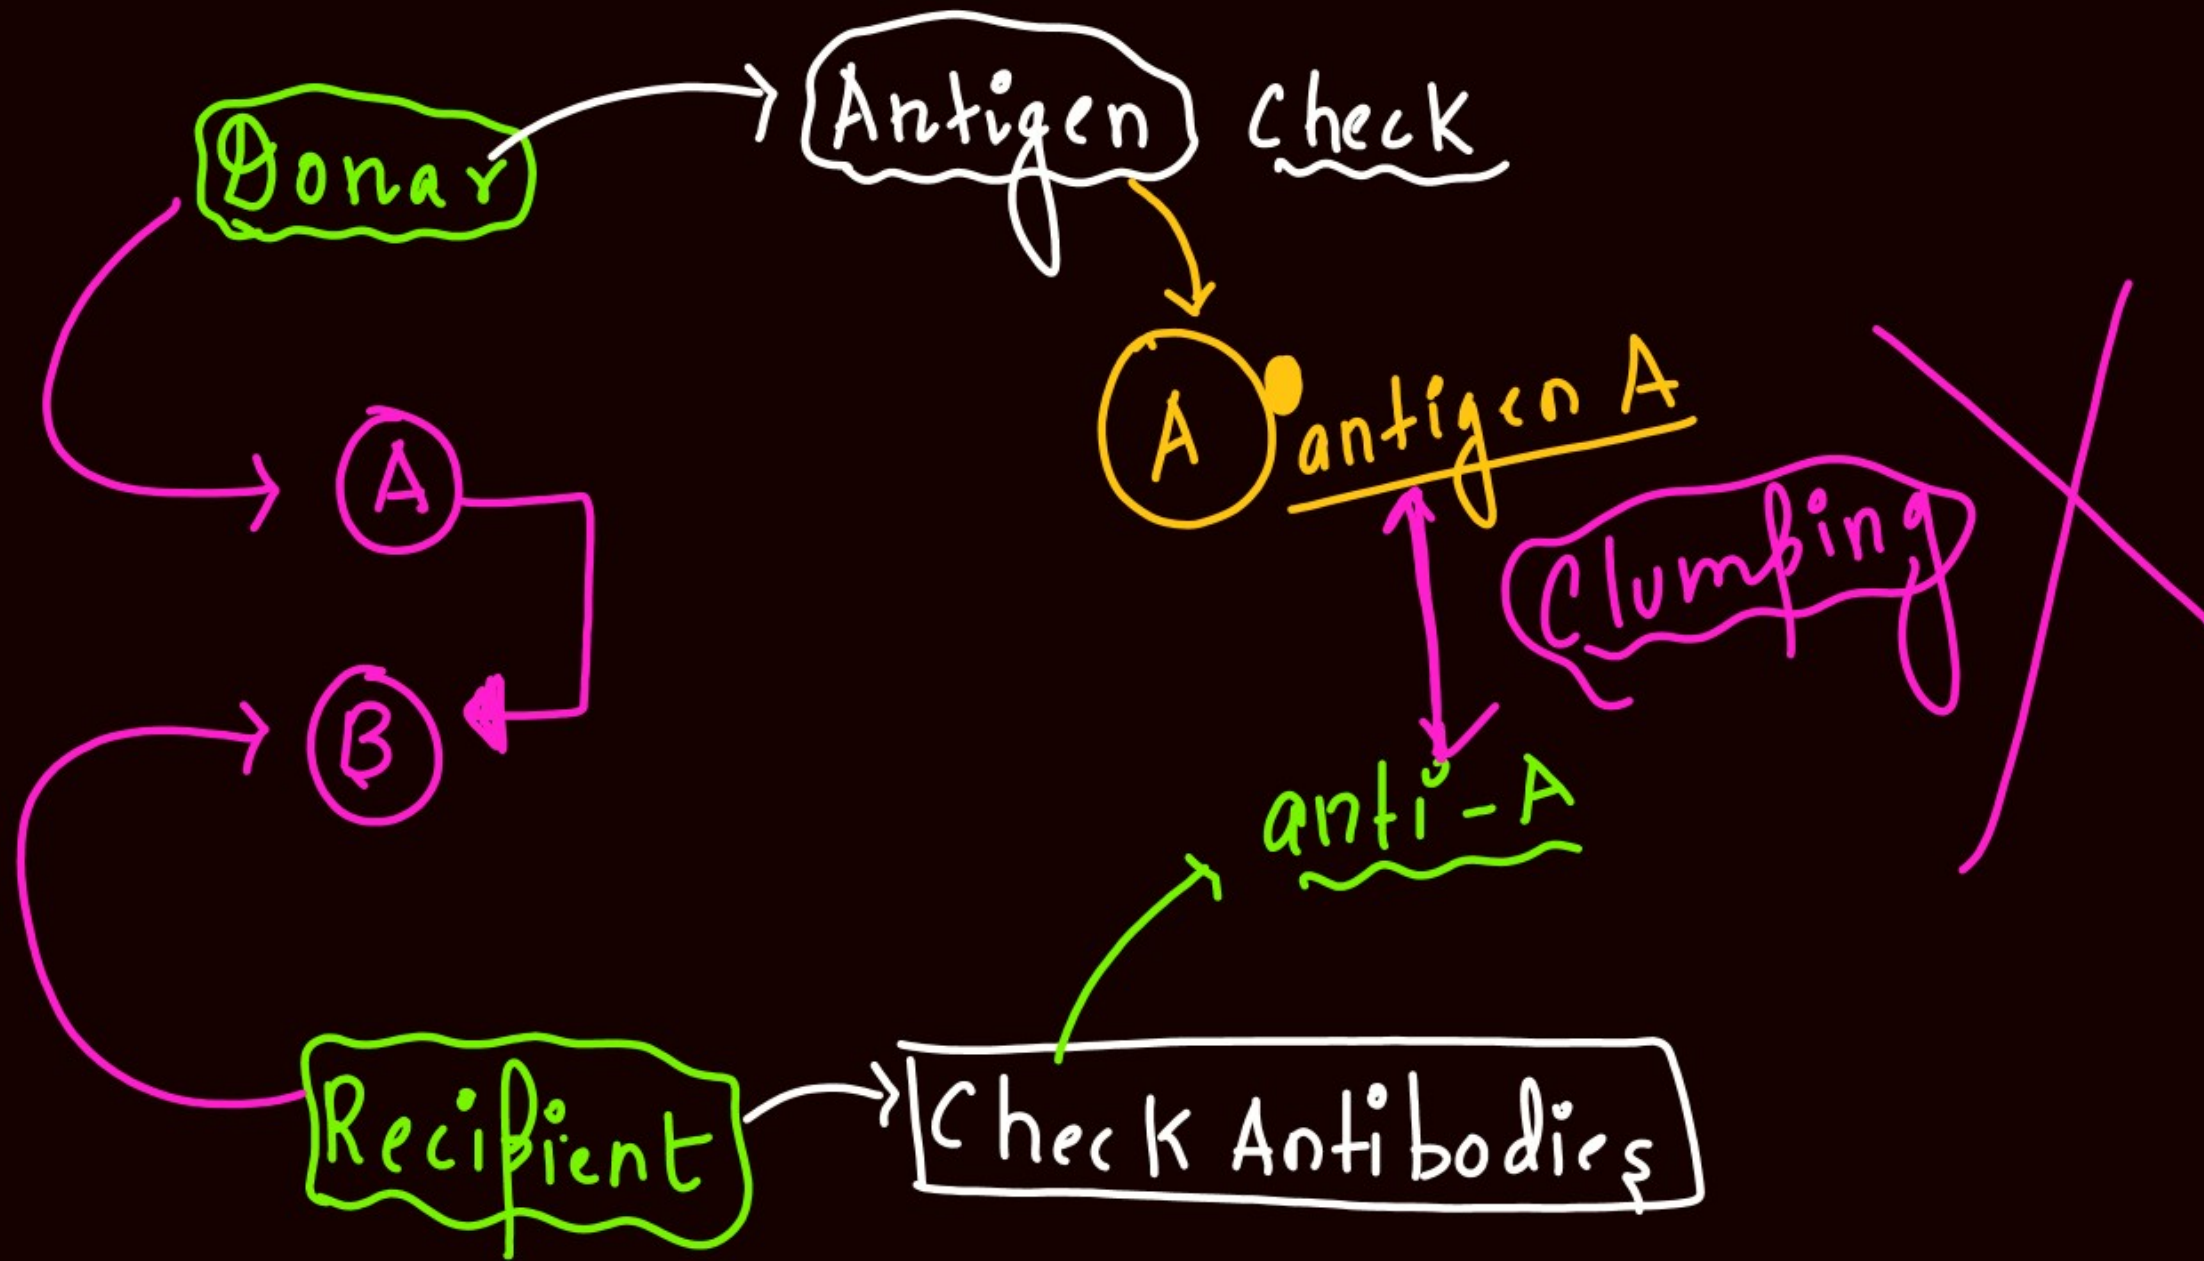 Donar
Antigen Check
A
A antigen A
Clumping
B
anti-A
Recipient
Check Antibodies